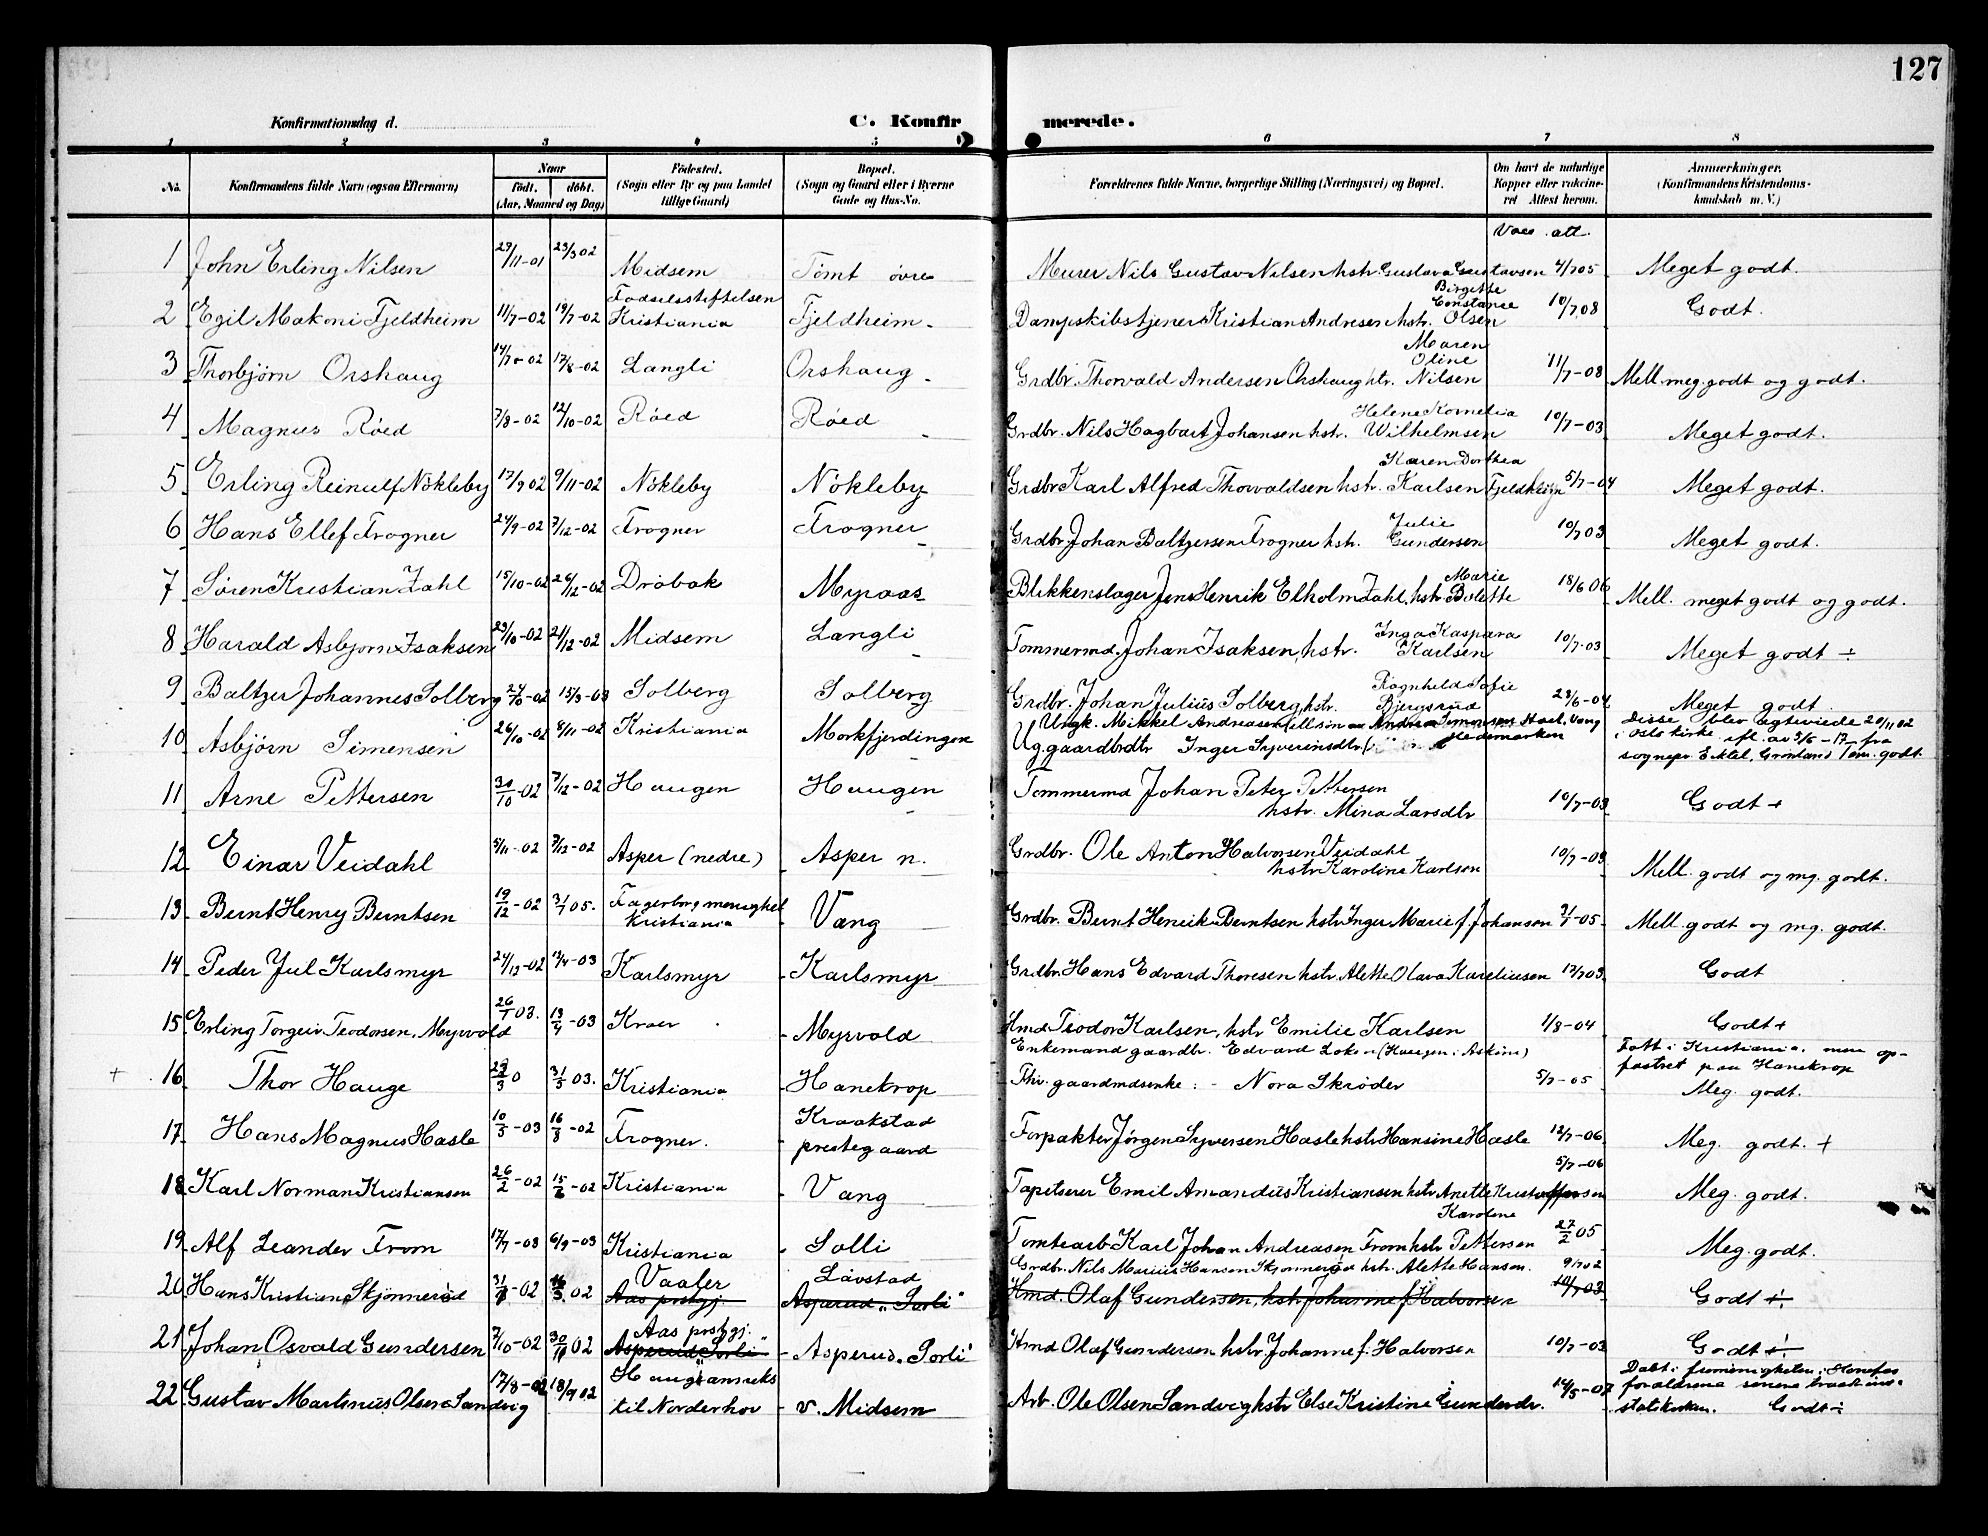 127
Konfirmationsdag d.
C. Konfirmerede.
1 2 3 4 5 6 7 8
No. Konfirmandens fulde Navn (ogsaa Efternavn) Naar født. døbt. (Aar, Maaned og Dag) Fødested. (Sogn eller By og paa Landet tillige Gaard) Bopæl. (Sogn og Gaard eller i Byerne Gade og Hus-No. Forældrenes fulde Navne, borgerlige Stilling (Næringsvei) og Bopæl. Om havt de naturlige Kopper eller vaccineret Attest herom. Anmærkninger. (Konfirmandens Kristendomskundskab m. V.)
Vacc. att.
1 John Erling Nilsen 29/11-01 23/3 02 Midsem Tømt øvre Murer Nils Gustav Nilsen hstr. Gustava Gustavsen 4/7 05 Meget godt.
2 Egil Makoni Fjeldheim 11/7-02 19/7-02 Fødselsstiftelsen Kristiania Fjeldheim Dampskibstjener Kristian Andresen hstr. Birgitte Constance Olsen 10/7 08 Godt.
3 Thorbjørn Orshaug 14/7-02 17/8-02 Langli Orshaug Grdbr. Thorvald Andersen Orshaug hstr. Maren Oline Nilsen 11/7-08 Mell. meg. godt og godt.
4 Magnus Røed 7/8-02 12/10-02 Røed Røed Grdbr. Nils Hagbart Johansen hstr. Helene Kornelia Wilhelmsen 10/7-03 Meget godt.
5 Erling Reinulf Nøkleby 17/9 02 9/11-02 Nøkleby Nøkleby Grdbr Karl Alfred Thorvaldsen hstr. Karen Dorthea Karlsen Fjeldheim 5/7-04 Meget godt.
6 Hans Ellef Frogner 24/9-02 7/12-02 Frogner Frogner Grdbr. Johan Baltzersen Frogner hstr. Julie Gundersen 10/7 03 Meget godt.
7 Søren Kristian Zahl 15/10-02 26/12-02 Drøbak Myraas Blikkenslager Jens Henrik Elholm Zahl, hstr. Marie Bolette 18/6 06 Mell. meget godt og godt.
8 Harald Asbjørn Isaksen 29/10-02 21/12-02 Midsem Langli Tømmermd. Johan Isaksen, hstr. Inga Kaspara Karlsen 10/7-03 Meget godt ÷
9 Baltzer Johannes Solberg 24/10-02 15/3-03 Solberg Solberg Grdbr. Johan Julius Solberg hstr. Ragnhild Sofie Bjergsrud 28/6-04 Meget godt.
10 Asbjørn Simensen 26/10-02 8/11-02 Kristiania Morkfjerdingen Ungk. Mikkel Andreasen Hedemarken
Ug. gaardbrdtr Inger Syverinsdtr. Disse blev egteviede 20/11 02 i Oslo kirke ifl. av 3/5-17 fra sognepr. Grønland godt.
11 Arne Pettersen 30/10-02 7/12-02 Haugen Haugen Tømmermd Johan Peter Pettersen hstr. Mina Larsdtr 10/7-03 Godt +
12 Einar Veidahl 5/11-02 7/12-02 Asper (nedre) Asper n. Grdbr. Ole Anton Halvorsen Veidahl hstr Karoline Karlsen 10/7-03 Mell. godt og mg. godt.
13 Bernt Henry Berntsen 19/12-02 3/1 05. Fagerborg menighet Kristiania Vang Grdbr. Bernt Henrik Berntsen hstr Inger Marie f. Johansen 3/1-05 Mell godt og mg. godt.
14 Peder Jul Karlsmyr 24/12-02 13/4-03 Karlsmyr Karlsmyr Grdbr. Hans Edvard Thoresen hstr. Alette Olava Kareliusen 17/7 03 Godt
15 Erling Torgeir Teodorsen Myrvold 26/1 03. 13/4-03 Kraer Myrvold Hmd. Teodor Karlsen, hstr Emilie Karlsen 1/8-04 Godt +
+ 16 Thor Hauge 31/5 03. Kristiania Hanekrop Enkemand gaardbr. Edvard Løken (Haugen i Askim) Thv. gaardmdsenke: - Nora Skrøder 5/7-05 Født i Kristiania, men opfostret paa Hanekrop Meg. godt.
17 Hans Magnus Hasle 10/3-03 16/8-02 Frogner. Kraakstad prestegaard Forpakter Jørgen Syversen Hasle hstr Hansine Hasle 12/7-06 Meg. godt. +
18 Karl Norman Kristiansen 26/2-02 15/6-02 Kristiania Vang Tapetserer Emil Amandus Kristiansen hstr Anette Kristoffersen 5/7-06 Meg. godt.
19 Alf Leander From 17/7-03 6/9-03 Kristiania Solli Tomtearb. Karl Johan Andreasen From hstr Karoline Pettersen 27/2 05 Meg. godt.
20 Hans Kristian Skjønnerød 02 Vaaler Aas prstgj. Løvstad Asperud "Sorli" Grdbr. Nils Marius Hansen Skjønnerød hstr. Alette Hansen. 9/7 02 Hmd. Olaf Gundersen, hstr Johanne f. Halvorsen 10/7-03 Godt +.
21 Johan Osvald Gundersen 7/10-02 30/11 02 Aas prstgj. Asperud Sorli Asperud "Sorli" Hmd Olaf Gundersen hstr. Johanne f. Halvorsen 10/7-03 Godt +.
22 Gustav Martinius Olsen Sandvig 17/8-02 18/9 02 til Norderhov v. Midsem Arb. Ole Olsen Sandvig hstr Else Kristine Gundersdr. 14/5-07 Døbt i frimenigheten i Hønefos forældrene senere statskirken. Godt ÷